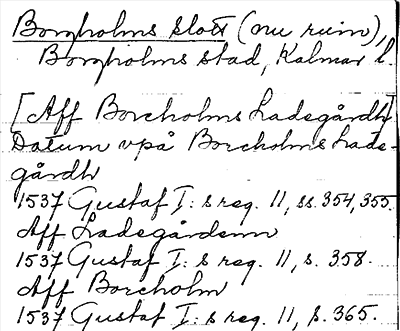 Borgholms slott (nu ruin),
Borgholms stad, Kalmar l.
[Aff Borcholms Ladegårdh]
Datum vpå Borcholms Lade-
gårdh
1537 Gustaf I: s reg. 11, ss. 354, 355.
Aff Ladegårdenn
1537 Gustaf I: s reg. 11, s. 358.
Aff Borcholm
1537 Gustaf I: s reg. 11, s. 365.